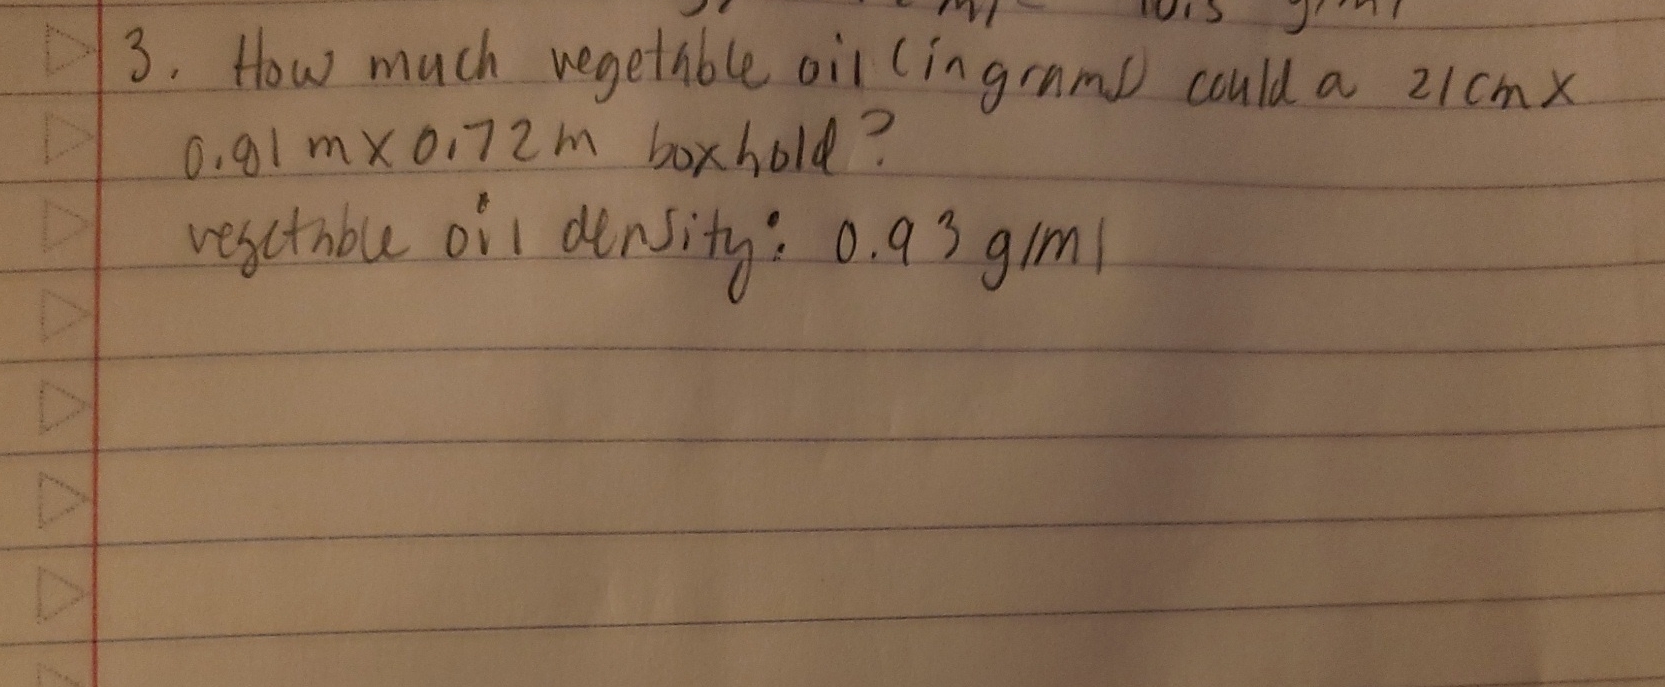 3. How much vegetable oil (in grams) could a 21cm x
0.81 m x 0.72 m box hold?
vegetable oil density: 0.93 g/ml